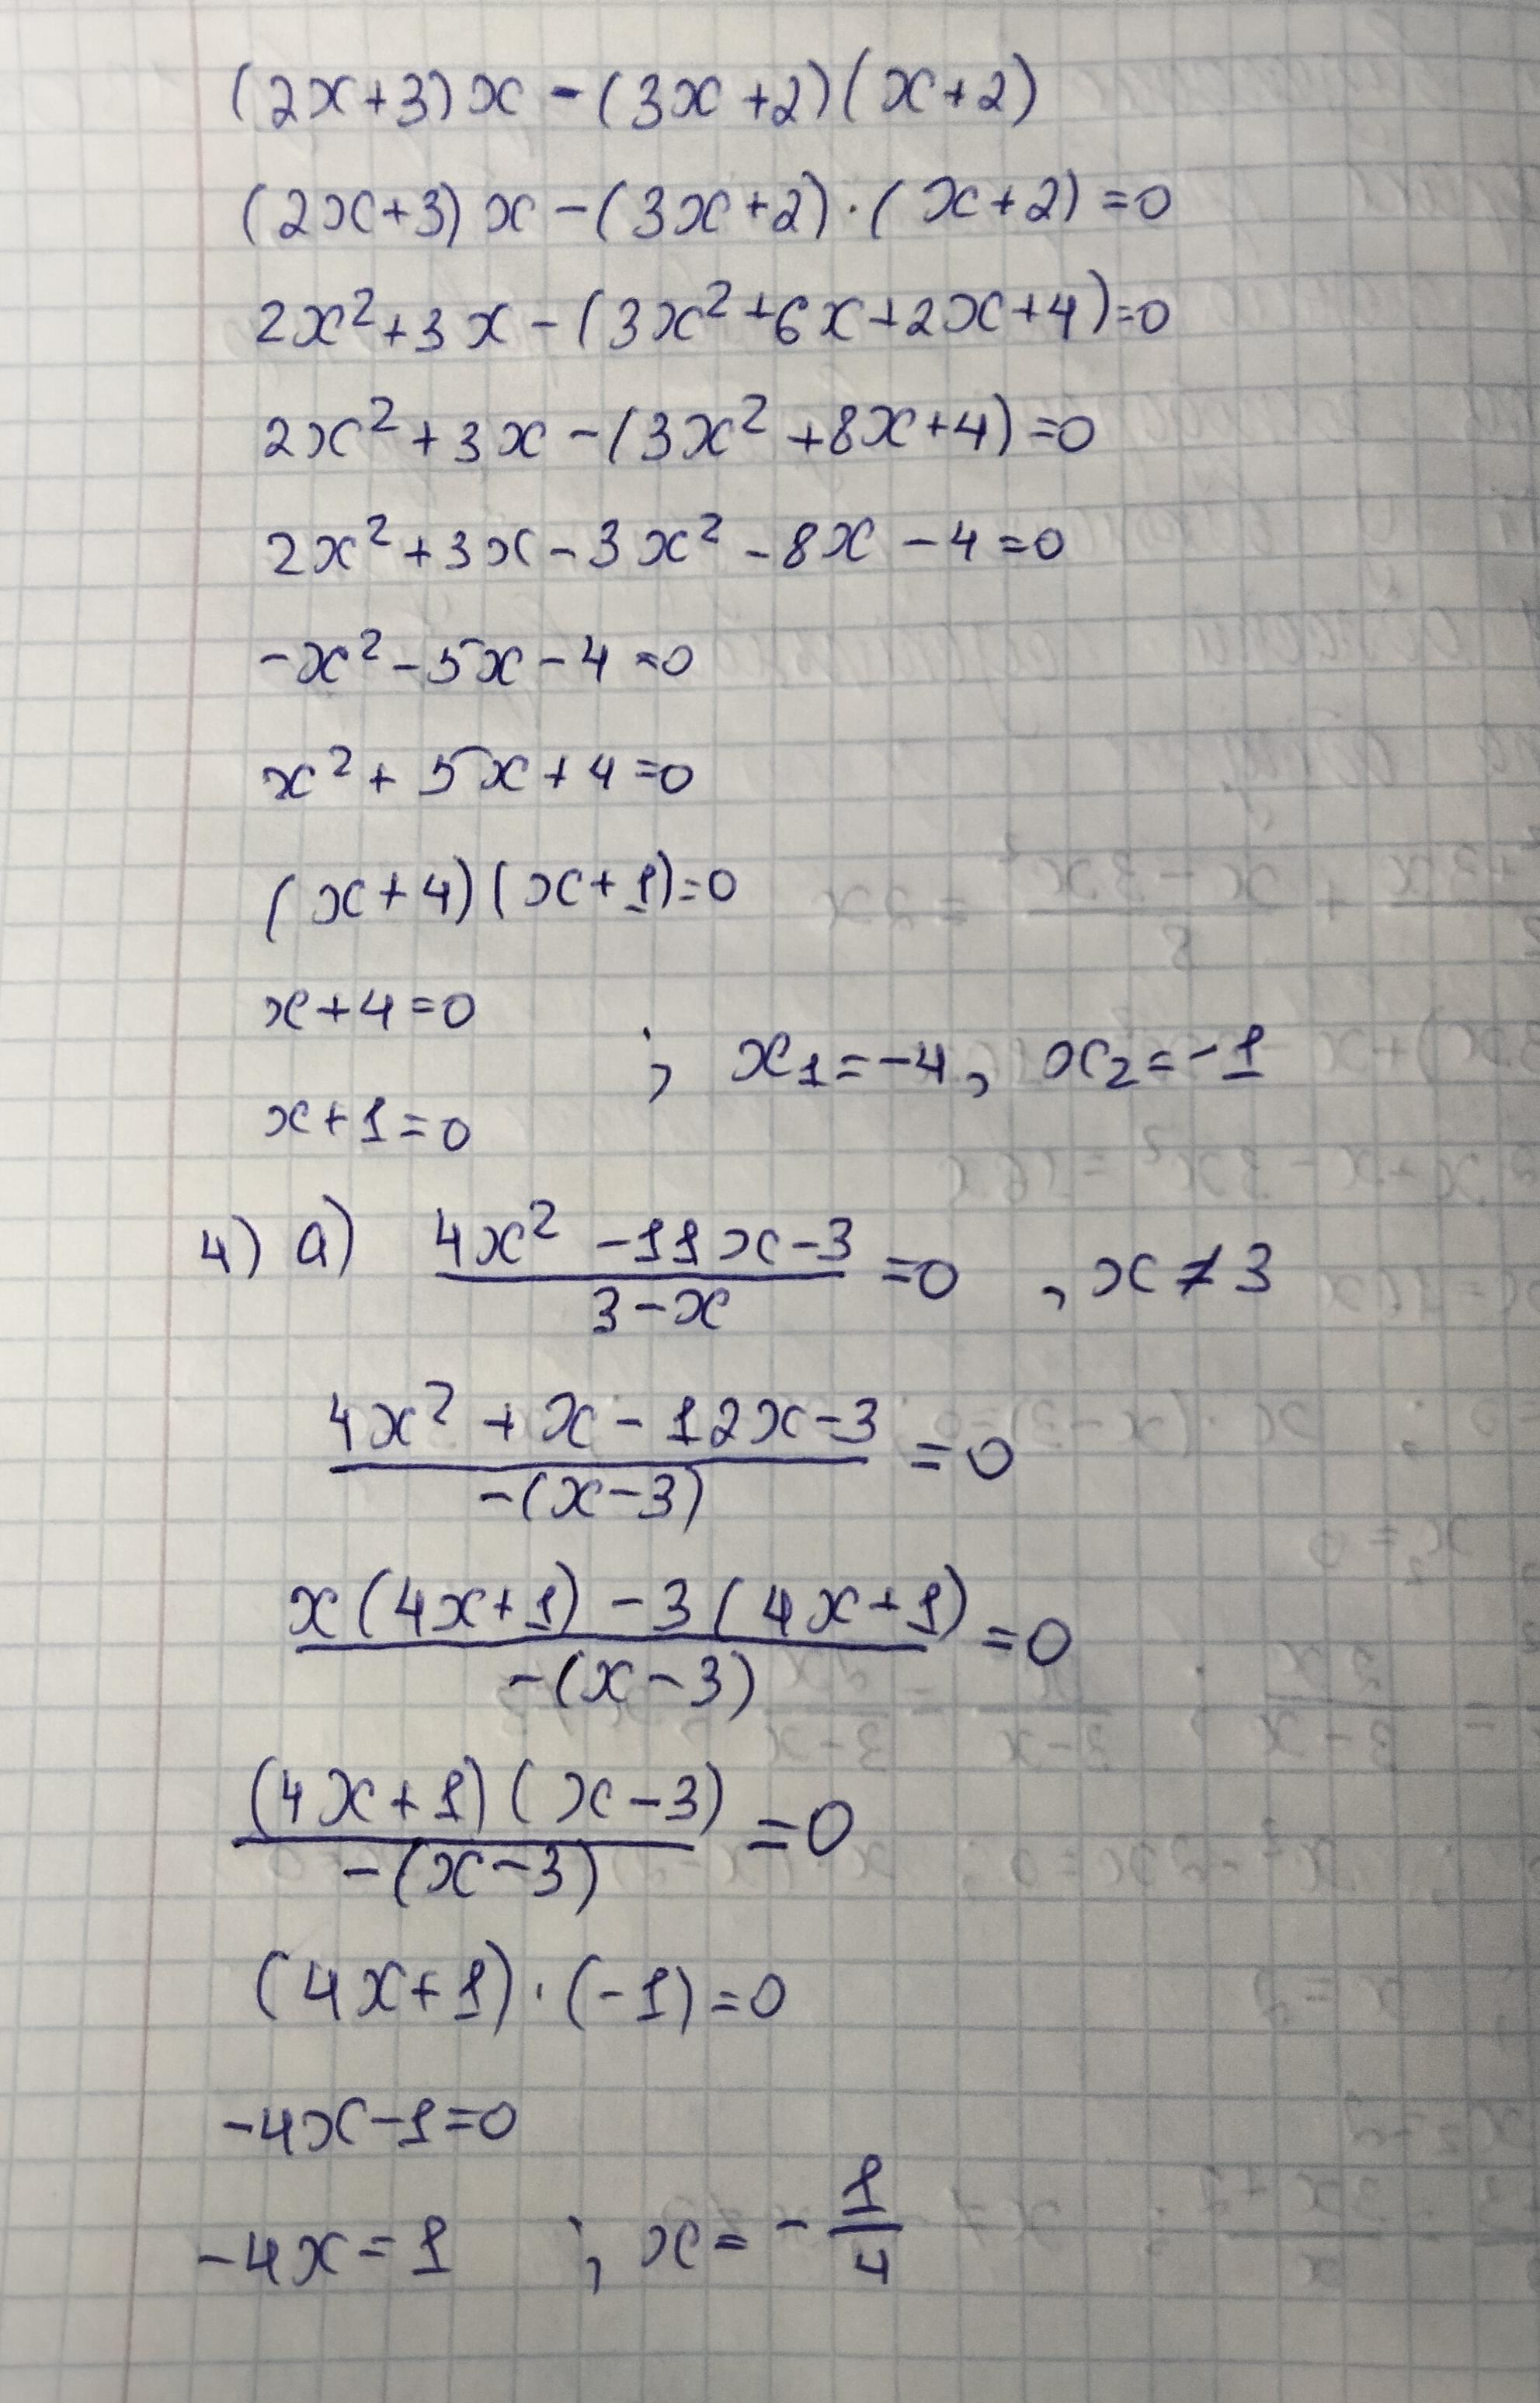 (2x+3)x-(3x+2)(x+2)
(2x+3)x-(3x+2)·(x+2)=0
2x²+3x-(3x²+6x+2x+4)=0
2x²+3x-(3x²+8x+4)=0
2x²+3x-3x²-8x-4=0
-x²-5x-4=0
x²+5x+4=0
(x+4)(x+1)=0
x+4=0
; x₁=-4, x₂=-1
x+1=0
4) a) (4x²-11x-3)/(3-x)=0, x≠3
(4x²+x-12x-3)/(-(x-3))=0
(x(4x+1)-3(4x+1))/(-(x-3))=0
((4x+1)(x-3))/(-(x-3))=0
(4x+1)·(-1)=0
-4x-1=0
-4x=1 ; x=-1/4